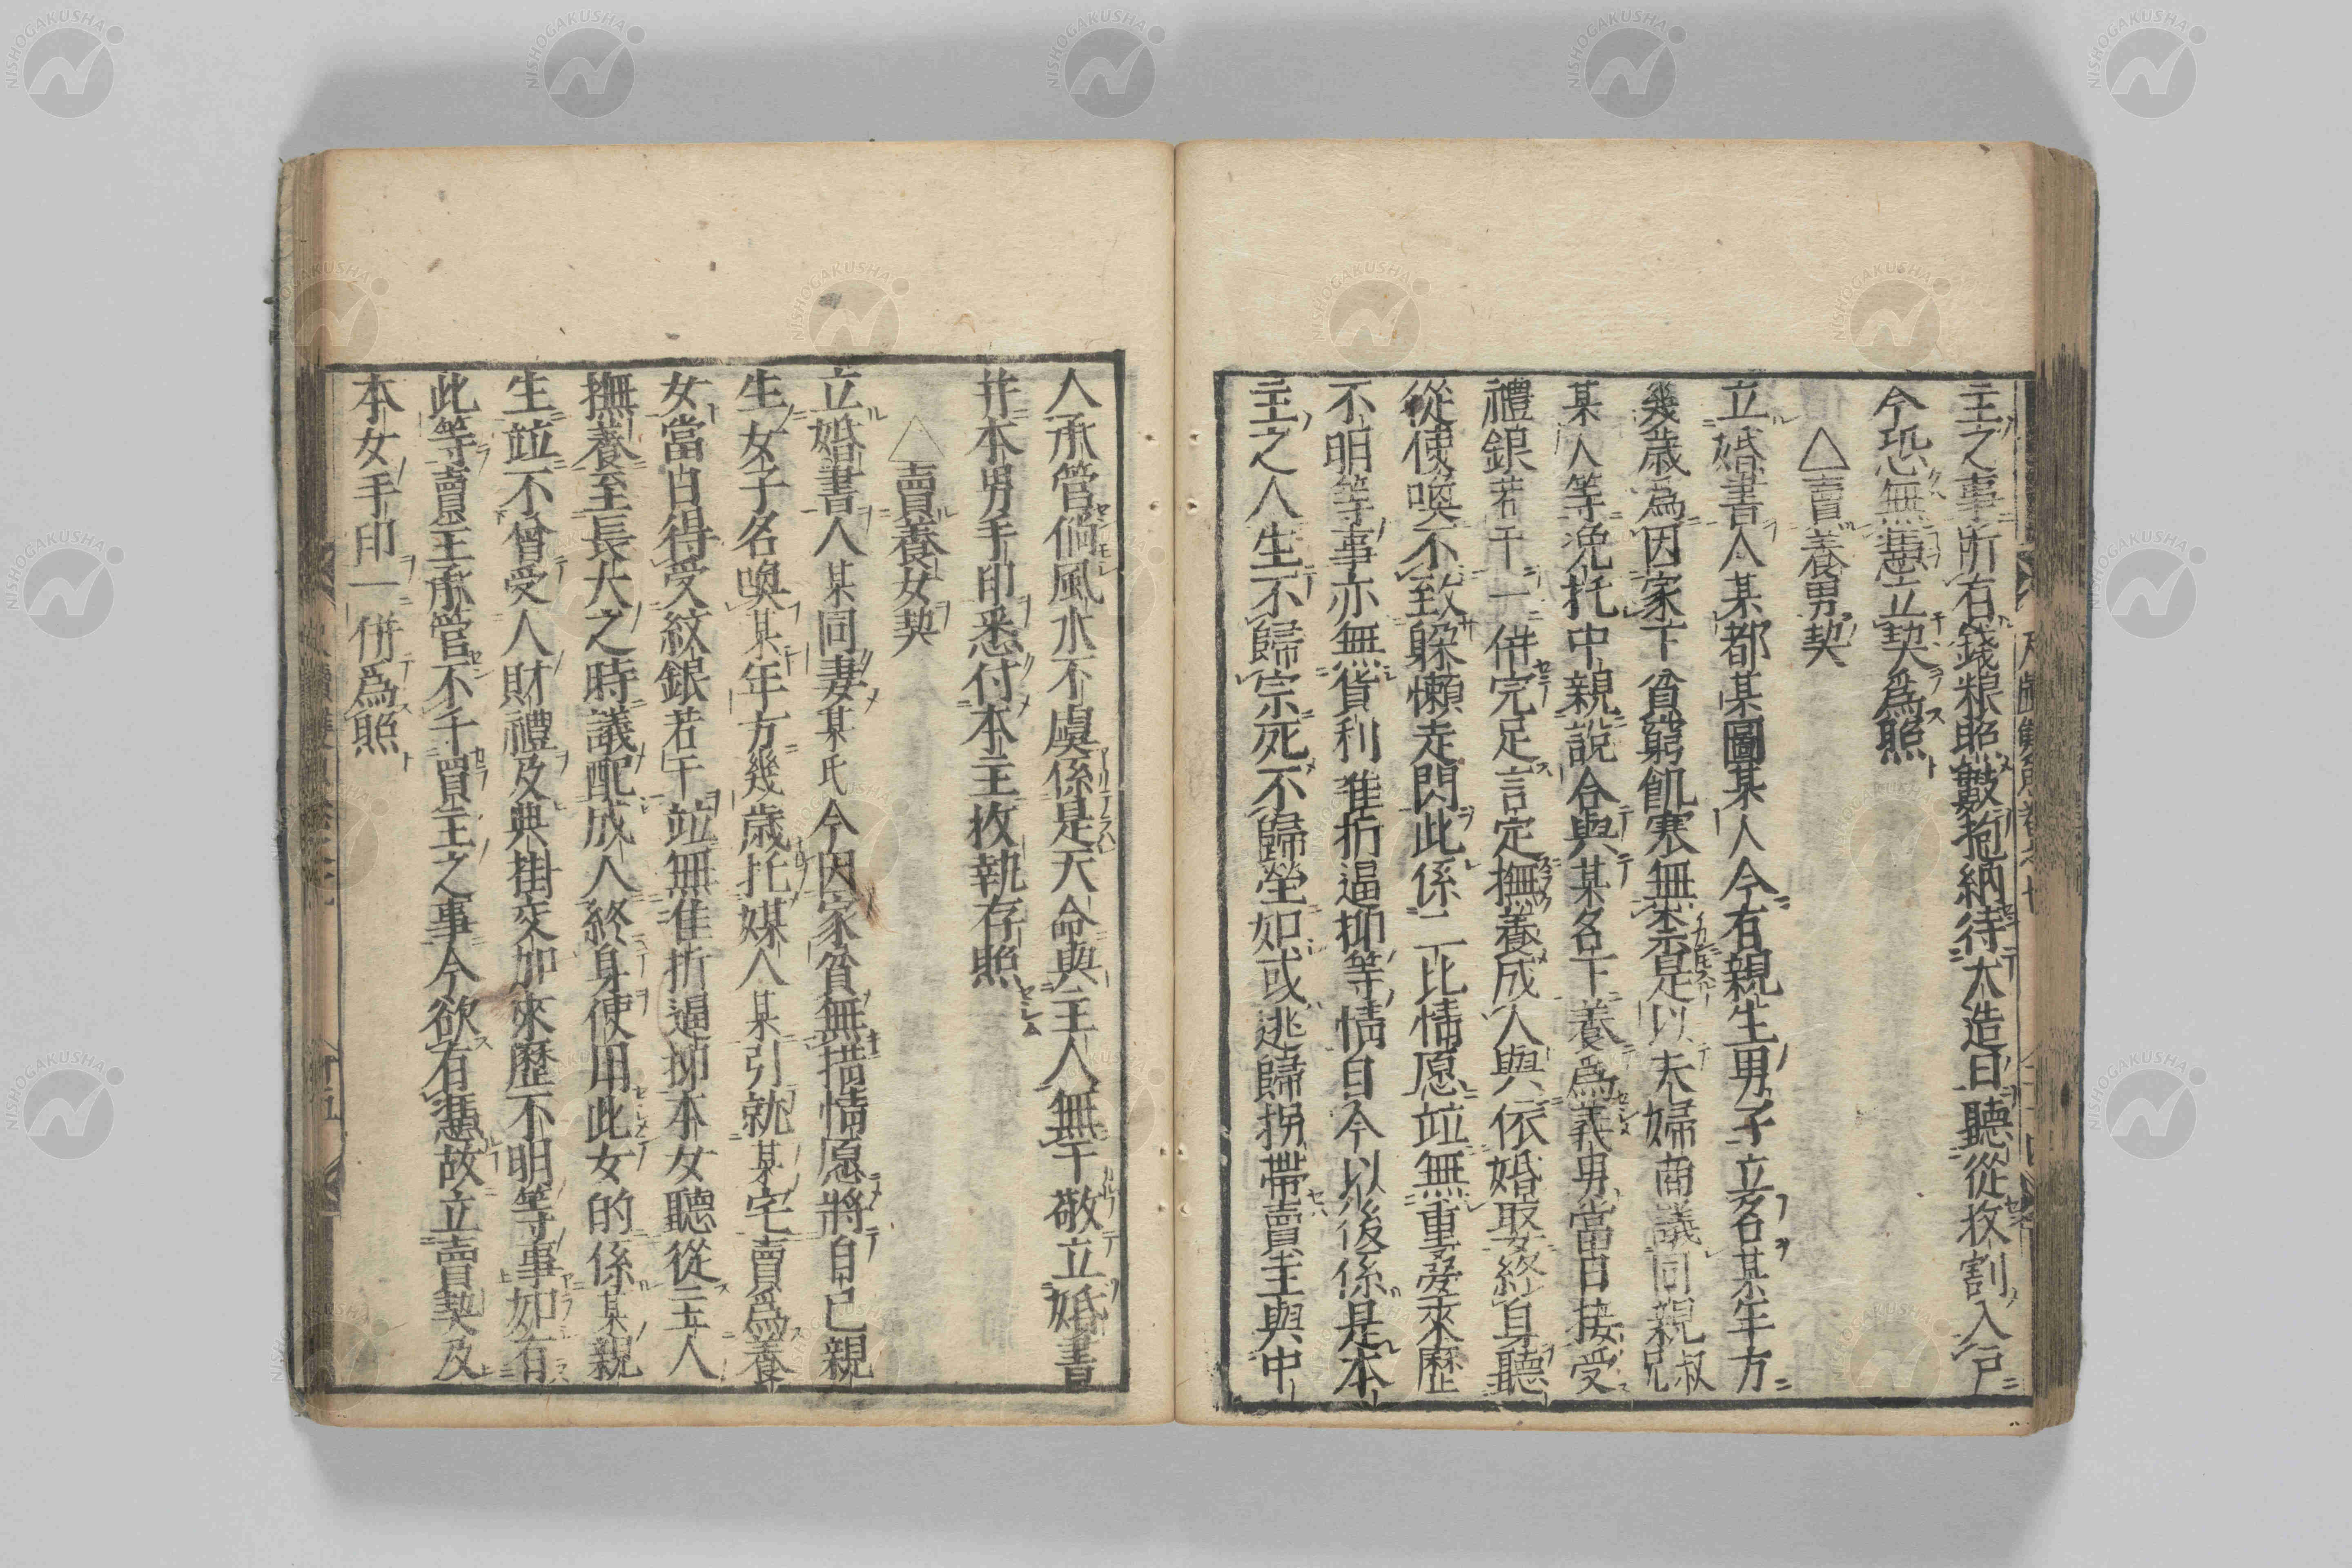 主之事所有錢粮照數抱納待大造日聽從收割入戸
今恐無憑立契爲照
△賣養男契
立婚書人某都某圖某人今有親生男子立名某年方
幾歳爲因家下貧窮飢寒無柰是以夫婦商議同親叔兄
某人等浼托中親說合與某名下養爲義男當日接受
禮銀若干一併完足言定撫養成人與依婚娶終身聽
從使喚不致躲懶走閃此係二比情愿竝無重疊來歷
不明等事亦無貨利准折逼抑等情自今以後係是本
主之人生不歸宗死不歸塋如或逃歸拐帶賣主與中
人承管倘風水不虞係是天命與主人無干敬立婚書
并本男手印悉付本主收執存照
△賣養女契
立婚書人某同妻某氏今因家貧無措情愿將自己親
生女子名喚某年方幾歳托媒人某引就某宅賣爲養
女當日得受紋銀若干竝無准折逼抑本女聽從主人
撫養至長大之時議配成人終身使用此女的係某親
生竝不曾受人財禮及典掛交加來歷不明等事如有
此等賣主承管不干買主之事今欲有憑故立賣契及
本女手印一併爲照
NISHOGAKUSHA